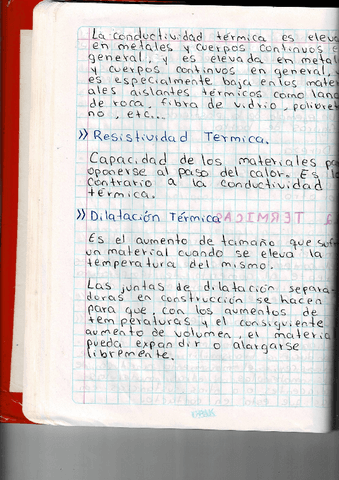 La conductividad térmica es eleva
en metales y cuerpos continuos e
general, y es elevada en metal
y cuerpos continuos en general, y
es especialmente baja en los mater
iales aislantes térmicos como lana
de roca, fibra de vidrio, poliure
no, etc...
» Resistividad Termica.
Capacidad de los materiales pa
oponerse al paso del calor. Es lo
contrario a la conductividad
térmica.
» Dilatación Térmica
Es el aumento de tamaño que sufr
un material cuando se eleva la
temperatura del mismo.
Las juntas de dilatación separa-
doras en construcción se hacen
para que, con los aumentos de
temperaturas y el consiguiente
aumento de volumen, el materia
pueda expandir o alargarse
libremente.